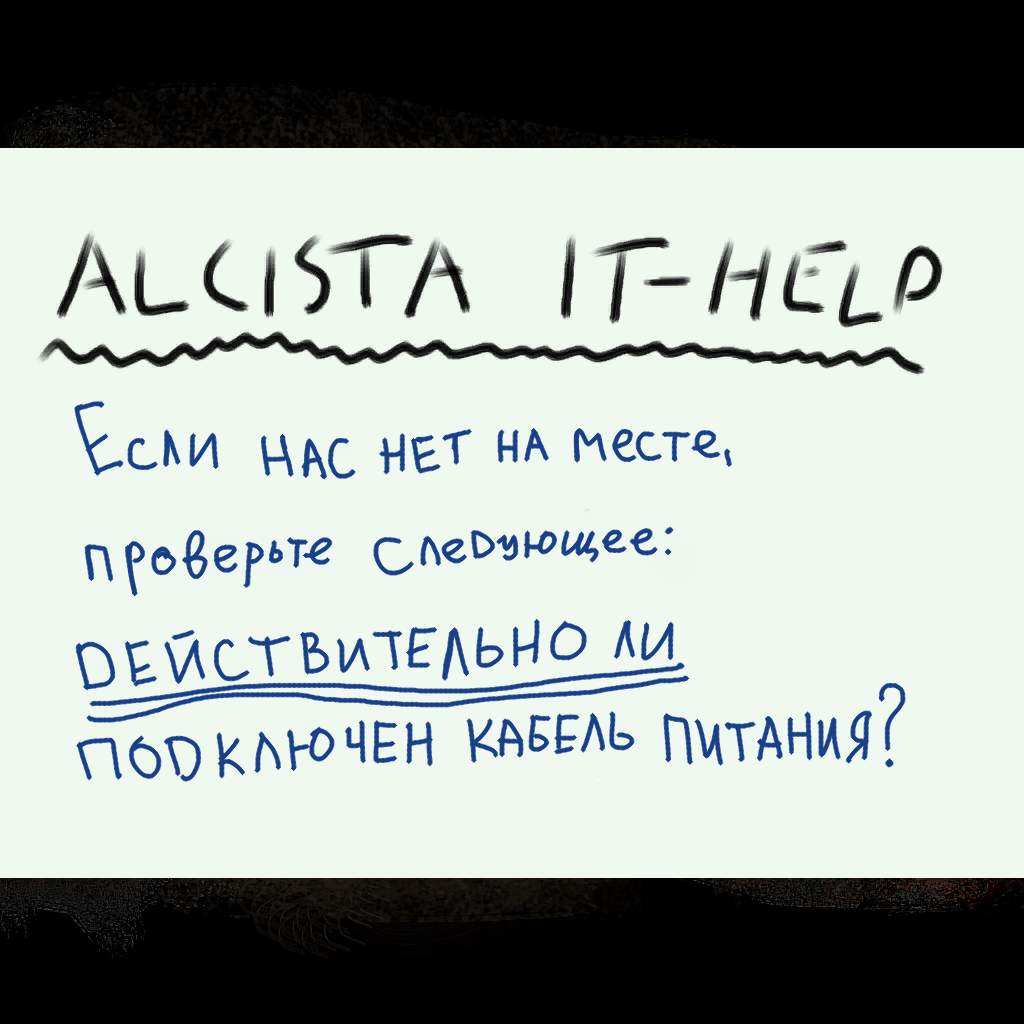 ALCISTA IT-HELP
Если нас нет на месте,
проверьте следующее:
ДЕЙСТВИТЕЛЬНО ЛИ
ПОДКЛЮЧЕН КАБЕЛЬ ПИТАНИЯ?